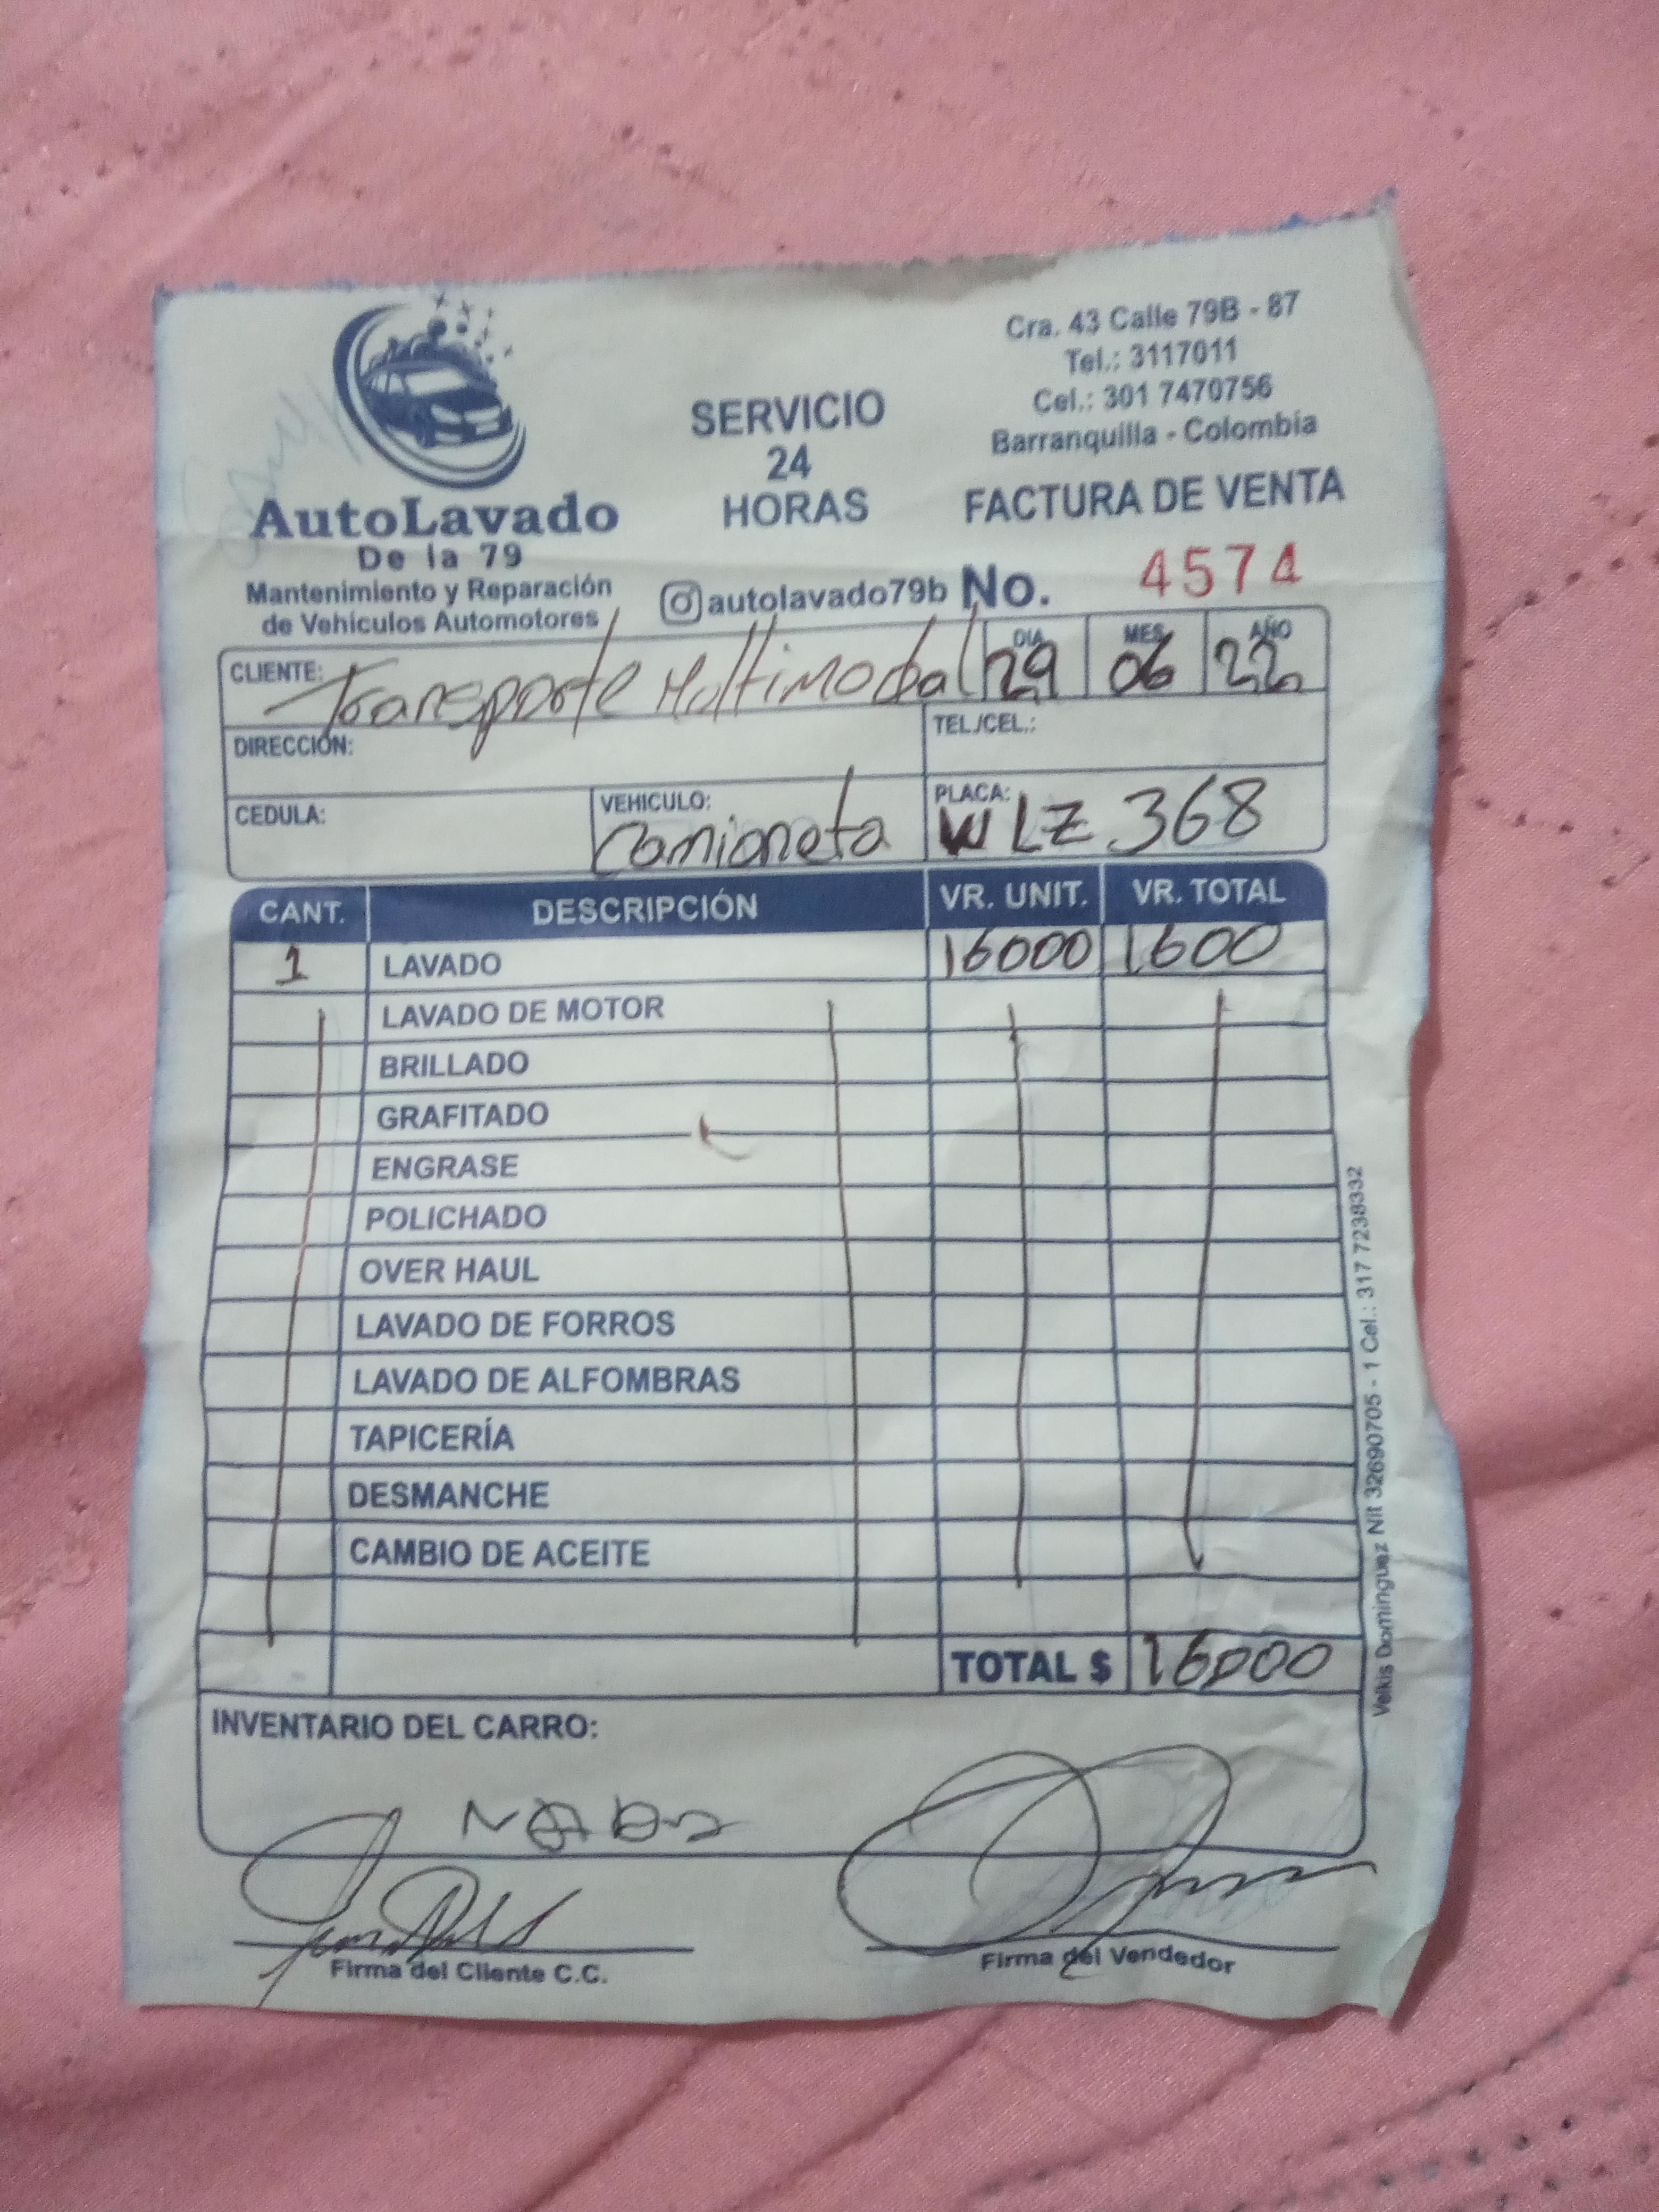 Cra. 43 Calle 79B - 87
Tel.: 3117011
Cel.: 301 7470756
Barranquilla - Colombia
SERVICIO
24
HORAS
AutoLavado
De la 79
Mantenimiento y Reparación
de Vehiculos Automotores
autolavado79b
FACTURA DE VENTA
No. 4574
CLIENTE: Transporte Multimodal
DIA 29 MES 06 AÑO 22
DIRECCIÓN: TEL./CEL.:
CEDULA: VEHICULO: Camioneta PLACA: WLZ 368
CANT. DESCRIPCIÓN VR. UNIT. VR. TOTAL
1 LAVADO 16000 1600
LAVADO DE MOTOR
BRILLADO
GRAFITADO
ENGRASE
POLICHADO
OVER HAUL
LAVADO DE FORROS
LAVADO DE ALFOMBRAS
TAPICERÍA
DESMANCHE
CAMBIO DE ACEITE
TOTAL $ 16000
INVENTARIO DEL CARRO:
Firma del Cliente C.C. Firma del Vendedor
Velkis Dominguez Nit 32690705 - 1 Cel.: 317 7238332